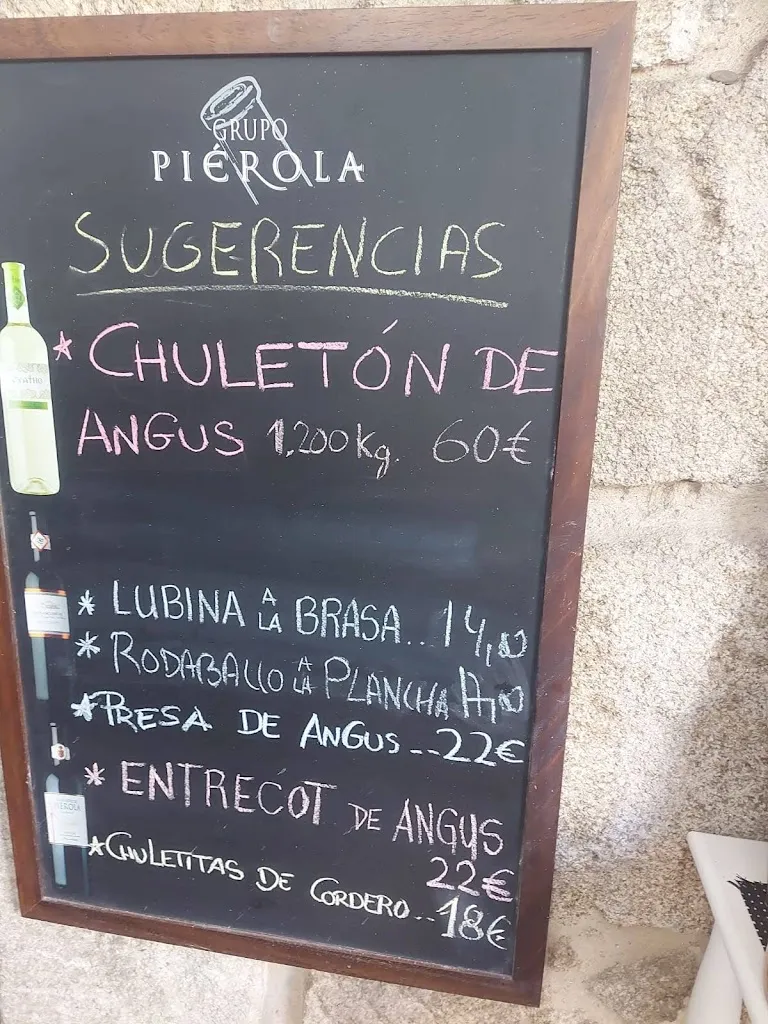 GRUPO
PIÉROLA
SUGERENCIAS
* CHULETÓN DE
ANGUS 1,200kg. 60€
* LUBINA A LA BRASA.. 14,00
* RODABALLO A LA PLANCHA
* PRESA DE ANGUS -- 22€
* ENTRECOT DE ANGUS
22€
* CHULETITAS DE CORDERO.. 18€